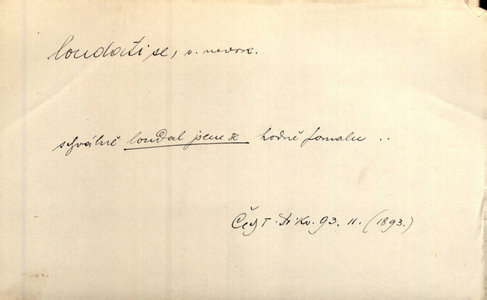 loudati se, v. nedok.
schválně loudal jsem se hodně pomalu ..
Čech 93. II. (1893.)